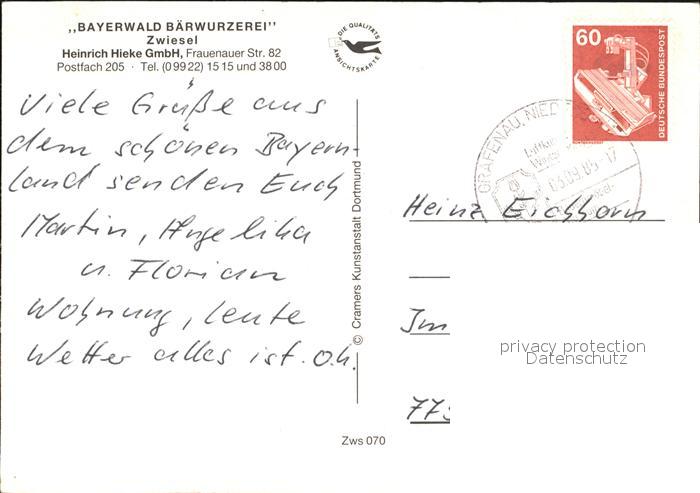 „BAYERWALD BÄRWURZEREI"
Zwiesel
Heinrich Hieke GmbH, Frauenauer Str. 82
Postfach 205 · Tel. (0 99 22) 15 15 und 38 00
DIE QUALITÄTS
ANSICHTSKARTE
60
DEUTSCHE BUNDESPOST
GRAFENAU, NIED
03.09.85-17
Viele Grüße aus
dem schönen Bayern-
land senden Euch
Martin, Angelika
u. Florian
Wohnung, Leute
Wetter alles ist o.k.
© Cramers Kunstanstalt Dortmund
Heinz Eichhorn
Im
77
privacy protection
Datenschutz
Zws 070